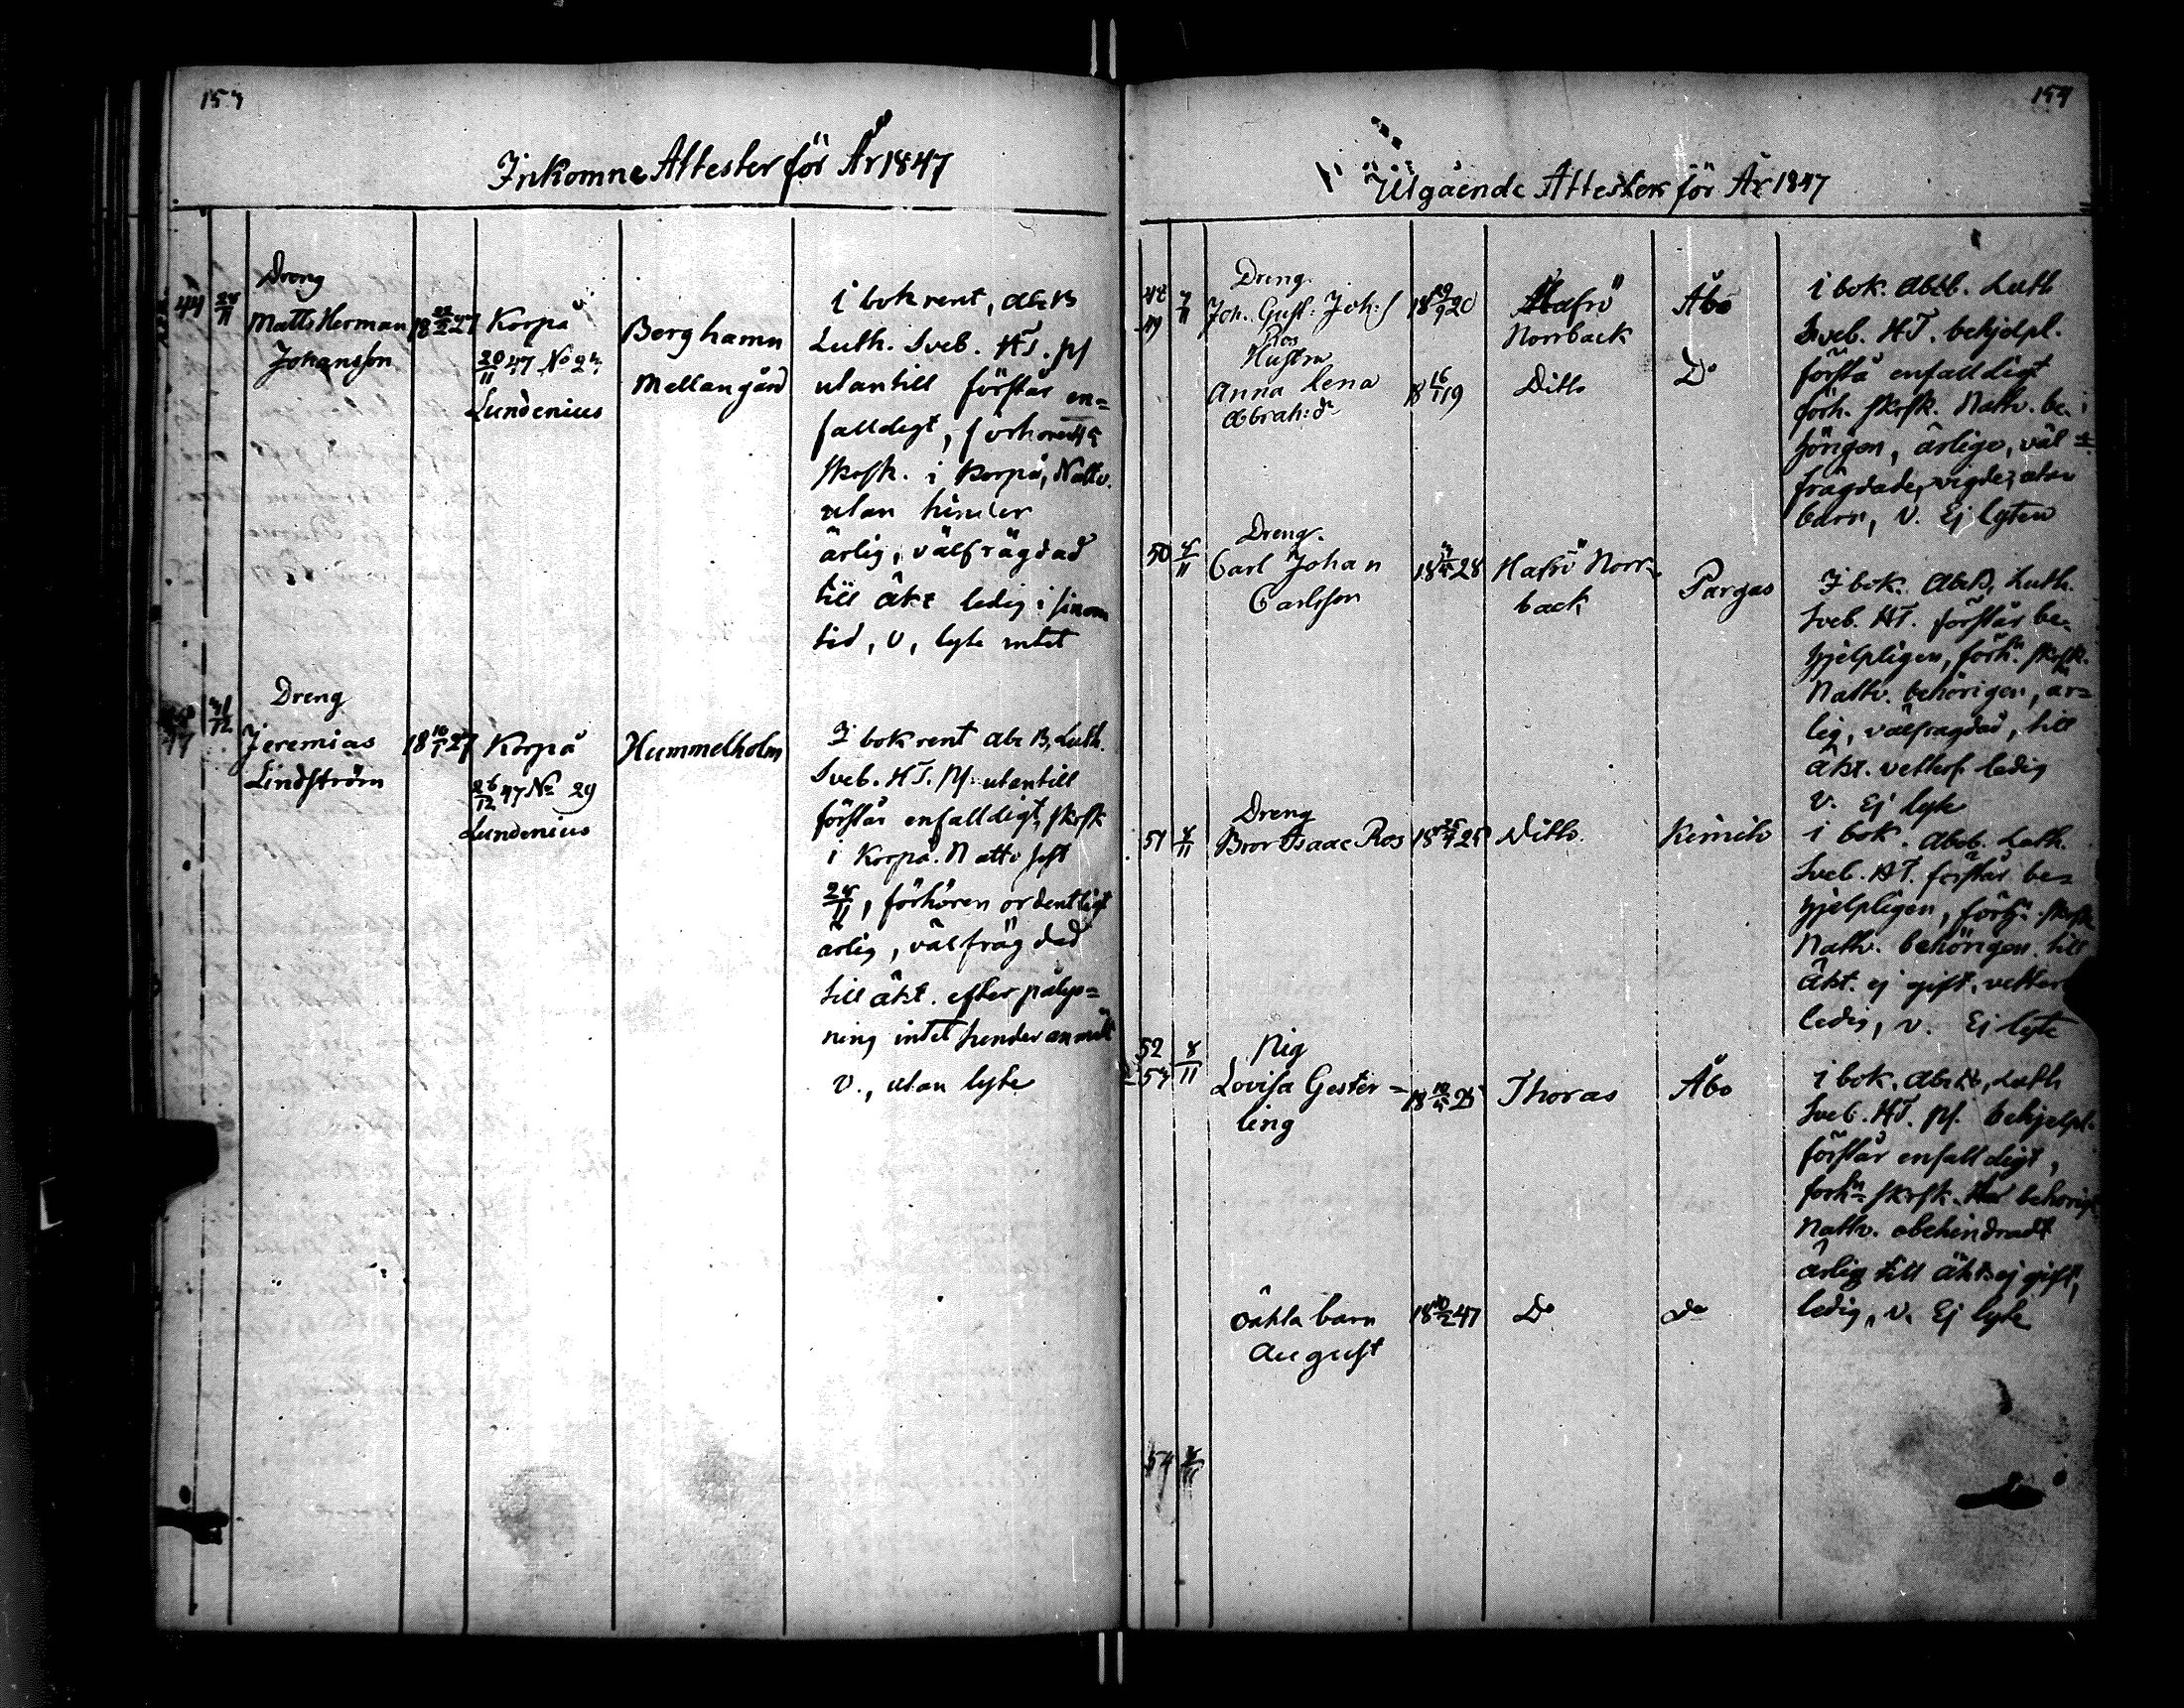 153
Inkomne Attester för År 1847
44 28/11
Dreng
Matts Herman
Johansson
18 22/2 27
Korpå
20/11 47 No 23
Lundenius
Berghamn
Mellangård
i bok rent, Abc B
Luth. Sveb. HT. Ps
utantill förstår en=
falldigt, förhören
skrsk. i Korpå, Nattv.
utan hinder
ärlig, välfrägdad
till äkt ledig i sinom
tid, v, lyte intet
31/12
Dreng
Jeremias
Lindström
18 16/1 27
Korpå
26/12 47 No 29
Lundenius
Hummelholm
I bok rent Abc B, Luth.
Sveb. HT. Ps. utantill
förstår enfalldigt, skrsk
i Korpå. Nattv sist
28/11, förhören ordentligt
ärlig, välfrägdad
till äkt. efter pålys=
ning intet hinder anmält
v., utan lyte
154
Utgående Attester för År 1847
49
Dreng
Joh. Gust: Joh:s
Ros
Hustru
Anna Lena
Abrah:dr
18 29/9 20
18 16/1 19
Hafrö
Norrback
Ditto
Åbo
Do
i bok. Abcb. Luth
Sveb. HT. behjelpl.
förstå enfalldigt
förh. skrsk. Nattv. be-
hörigen, ärlige, väl=
frägdade, vigde, utan
barn, v. Ej lyten
50 4/11
Dreng.
Carl Johan
Carlsson
28
Hafrö Norr-
back
Pargas
I bok. AbcB, Luth.
Sveb. HT. förstår be-
hjelpligen, förh:n skrsk.
Nattv. behörigen, är=
lig, välfrägdad, till
äkt. vetterl. ledig
v. Ej lyte
51 4/11
Dreng
Bror Isaac Ros
25
Ditto.
Kimito
i bok. Abcb. Luth.
Sveb. HT. förstår be=
hjelpligen, förh:n skrsk
Nattv. behörigen. till
äkt. ej gift, vetterl
ledig, v. Ej lyte
52
53
8/11
Pig
Lovisa Gester=
ling
18 10/5 25
Thoras
Åbo
i bok. Abc b, Luth
Sveb. HT. Ps. behjelpl.
förstår enfalldigt,
förh:n skrsk. behörigt
Nattv. obehindradt
ärlig till äkt ej gift,
ledig, v. Ej lyte
Oäkta barn
August
18 10/2 47
Do
Do
54